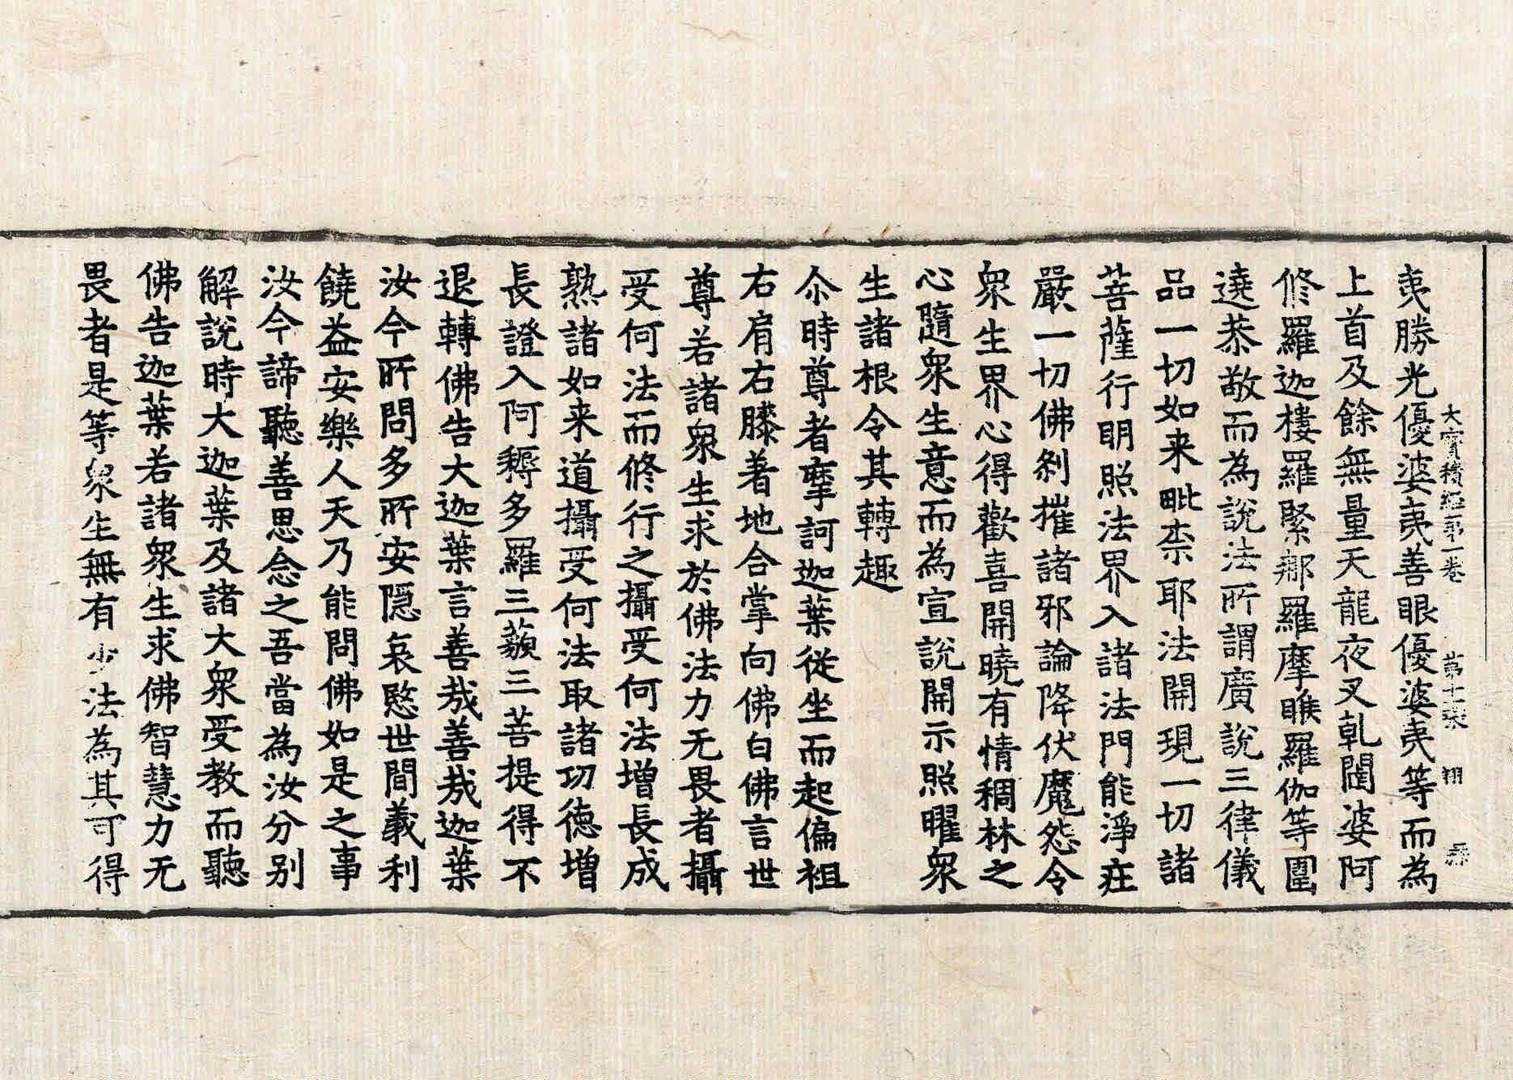 大寶積經第一卷 第十二張 翔
夷勝光優婆夷善眼優婆夷等而為
上首及餘無量天龍夜叉乹闥婆阿
修羅迦樓羅緊那羅摩睺羅伽等圍
遶恭敬而為說法所謂廣說三律儀
品一切如来毗柰耶法開現一切諸
菩薩行明照法界入諸法門能淨莊
嚴一切佛刹摧諸邪論降伏魔怨令
衆生界心得歡喜開曉有情稠林之
心隨衆生意而為宣說開示照曜衆
生諸根令其轉趣
尒時尊者摩訶迦葉從坐而起偏袒
右肩右膝著地合掌向佛白佛言世
尊若諸衆生求於佛法力无畏者攝
受何法而修行之攝受何法增長成
熟諸如来道攝受何法取諸功德增
長證入阿耨多羅三藐三菩提得不
退轉佛告大迦葉言善㢤善㢤迦葉
汝今所問多所安隱哀愍世間義利
饒益安樂人天乃能問佛如是之事
汝今諦聽善思念之吾當為汝分別
解說時大迦葉及諸大衆受教而聽
佛告迦葉若諸衆生求佛智慧力无
畏者是等衆生無有少法為其可得